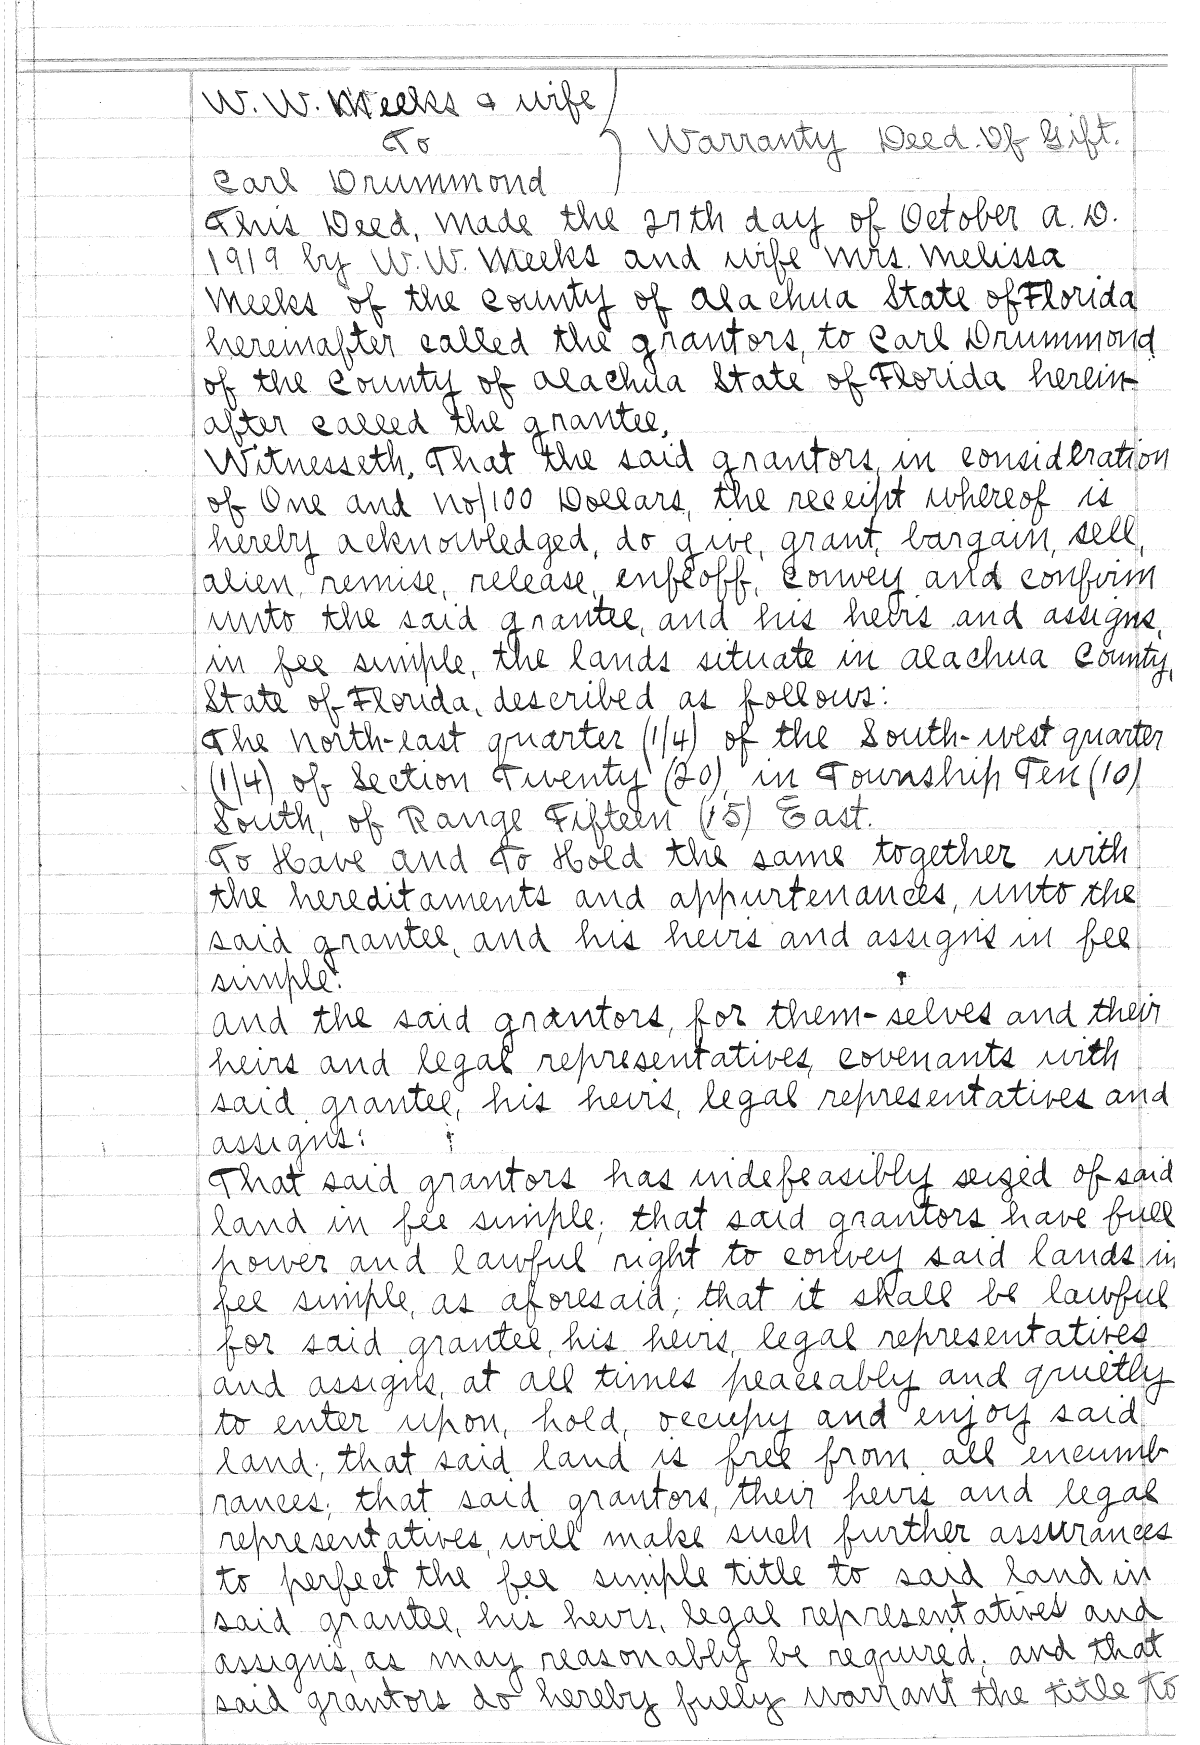 W. W. Meeks & wife
To
Warranty Deed. Of Gift.
Carl Drummond
This Deed, made the 27th day of October A. D.
1919 by W. W. Meeks and wife Mrs. Melissa
Meeks of the County of Alachua State of Florida
hereinafter called the grantors, to Carl Drummond
of the County of Alachua State of Florida herein-
after called the grantee,
Witnesseth, That the said grantors, in consideration
of One and no/100 Dollars, the receipt whereof is
hereby acknowledged, do give, grant, bargain, sell,
alien, remise, release, enfeoff, convey and confirm
unto the said grantee, and his heirs and assigns,
in fee simple, the lands situate in Alachua County,
State of Florida, described as follows:
The North-east quarter (1/4) of the South-west quarter
(1/4) of Section Twenty (20), in Township Ten (10)
South, of Range Fifteen (15) East.
To Have and To Hold the same together with
the hereditaments and appurtenances, unto the
said grantee, and his heirs and assigns in fee
simple.
And the said grantors, for them-selves and their
heirs and legal representatives, covenants with
said grantee, his heirs, legal representatives and
assigns:
That said grantors has indefeasibly seized of said
land in fee simple; that said grantors have full
power and lawful right to convey said lands in
fee simple, as aforesaid; that it shall be lawful
for said grantee, his heirs, legal representatives
and assigns, at all times peaceably and quietly
to enter upon, hold, occupy and enjoy said
land; that said land is free from all encumb
rances; that said grantors, their heirs and legal
representatives, will make such further assurances
to perfect the fee simple title to said land in
said grantee, his heirs, legal representatives and
assigns, as may reasonably be required; and that
said grantors do hereby fully warrant the title to